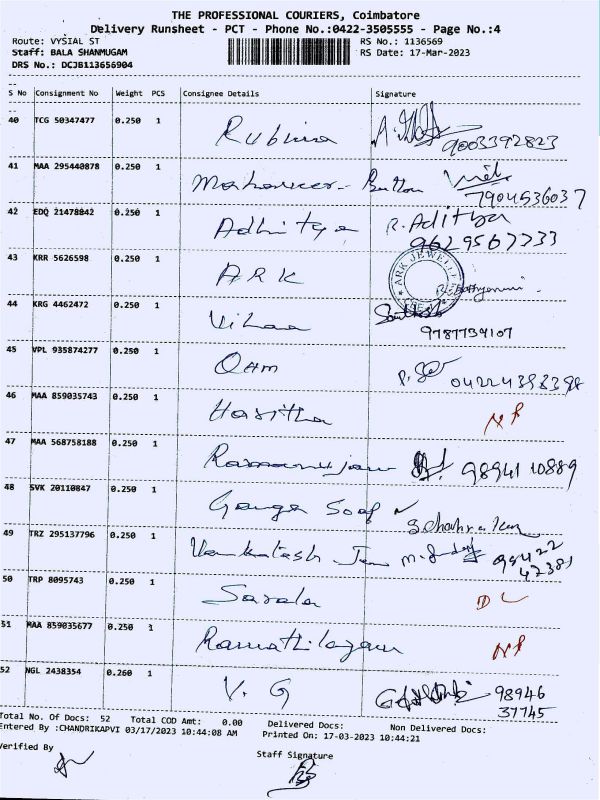 THE PROFESSIONAL COURIERS, Coimbatore
Delivery Runsheet - PCT - Phone No.:0422-3505555 - Page No.:4
Route: VYSIAL ST RS No.: 1136569
Staff: BALA SHANMUGAM RS Date: 17-Mar-2023
DRS No.: DCJB113656904
S No Consignment No Weight PCS Consignee Details Signature
40 TCG 50347477 0.250 1 Rubina 9003392823
41 MAA 295440878 0.250 1 Mahaveer - Button 7904536037
42 EDQ 21478842 0.250 1 Adhitya R. Aditya
9629567333
43 KRR 5626598 0.250 1 ARK ARK JEWELLE
44 KRG 4462472 0.250 1 Vihaa
9787739107
45 VPL 935874277 0.250 1 Oam 04224398398
46 MAA 859035743 0.250 1 Hasitha NP
47 MAA 568758188 0.250 1 Ramanujam 9894110889
48 SVK 20110847 0.250 1 Ganga Soap
49 TRZ 295137796 0.250 1 Venkatesh 95422
42381
50 TRP 8095743 0.250 1 Sarala DL
51 MAA 859035677 0.250 1 Ramathilagam NP
52 NGL 2438354 0.260 1 V. G 98946
37745
Total No. Of Docs: 52 Total COD Amt: 0.00 Delivered Docs: Non Delivered Docs:
Entered By :CHANDRIKAPVI 03/17/2023 10:44:08 AM Printed On: 17-03-2023 10:44:21
Verified By Staff Signature